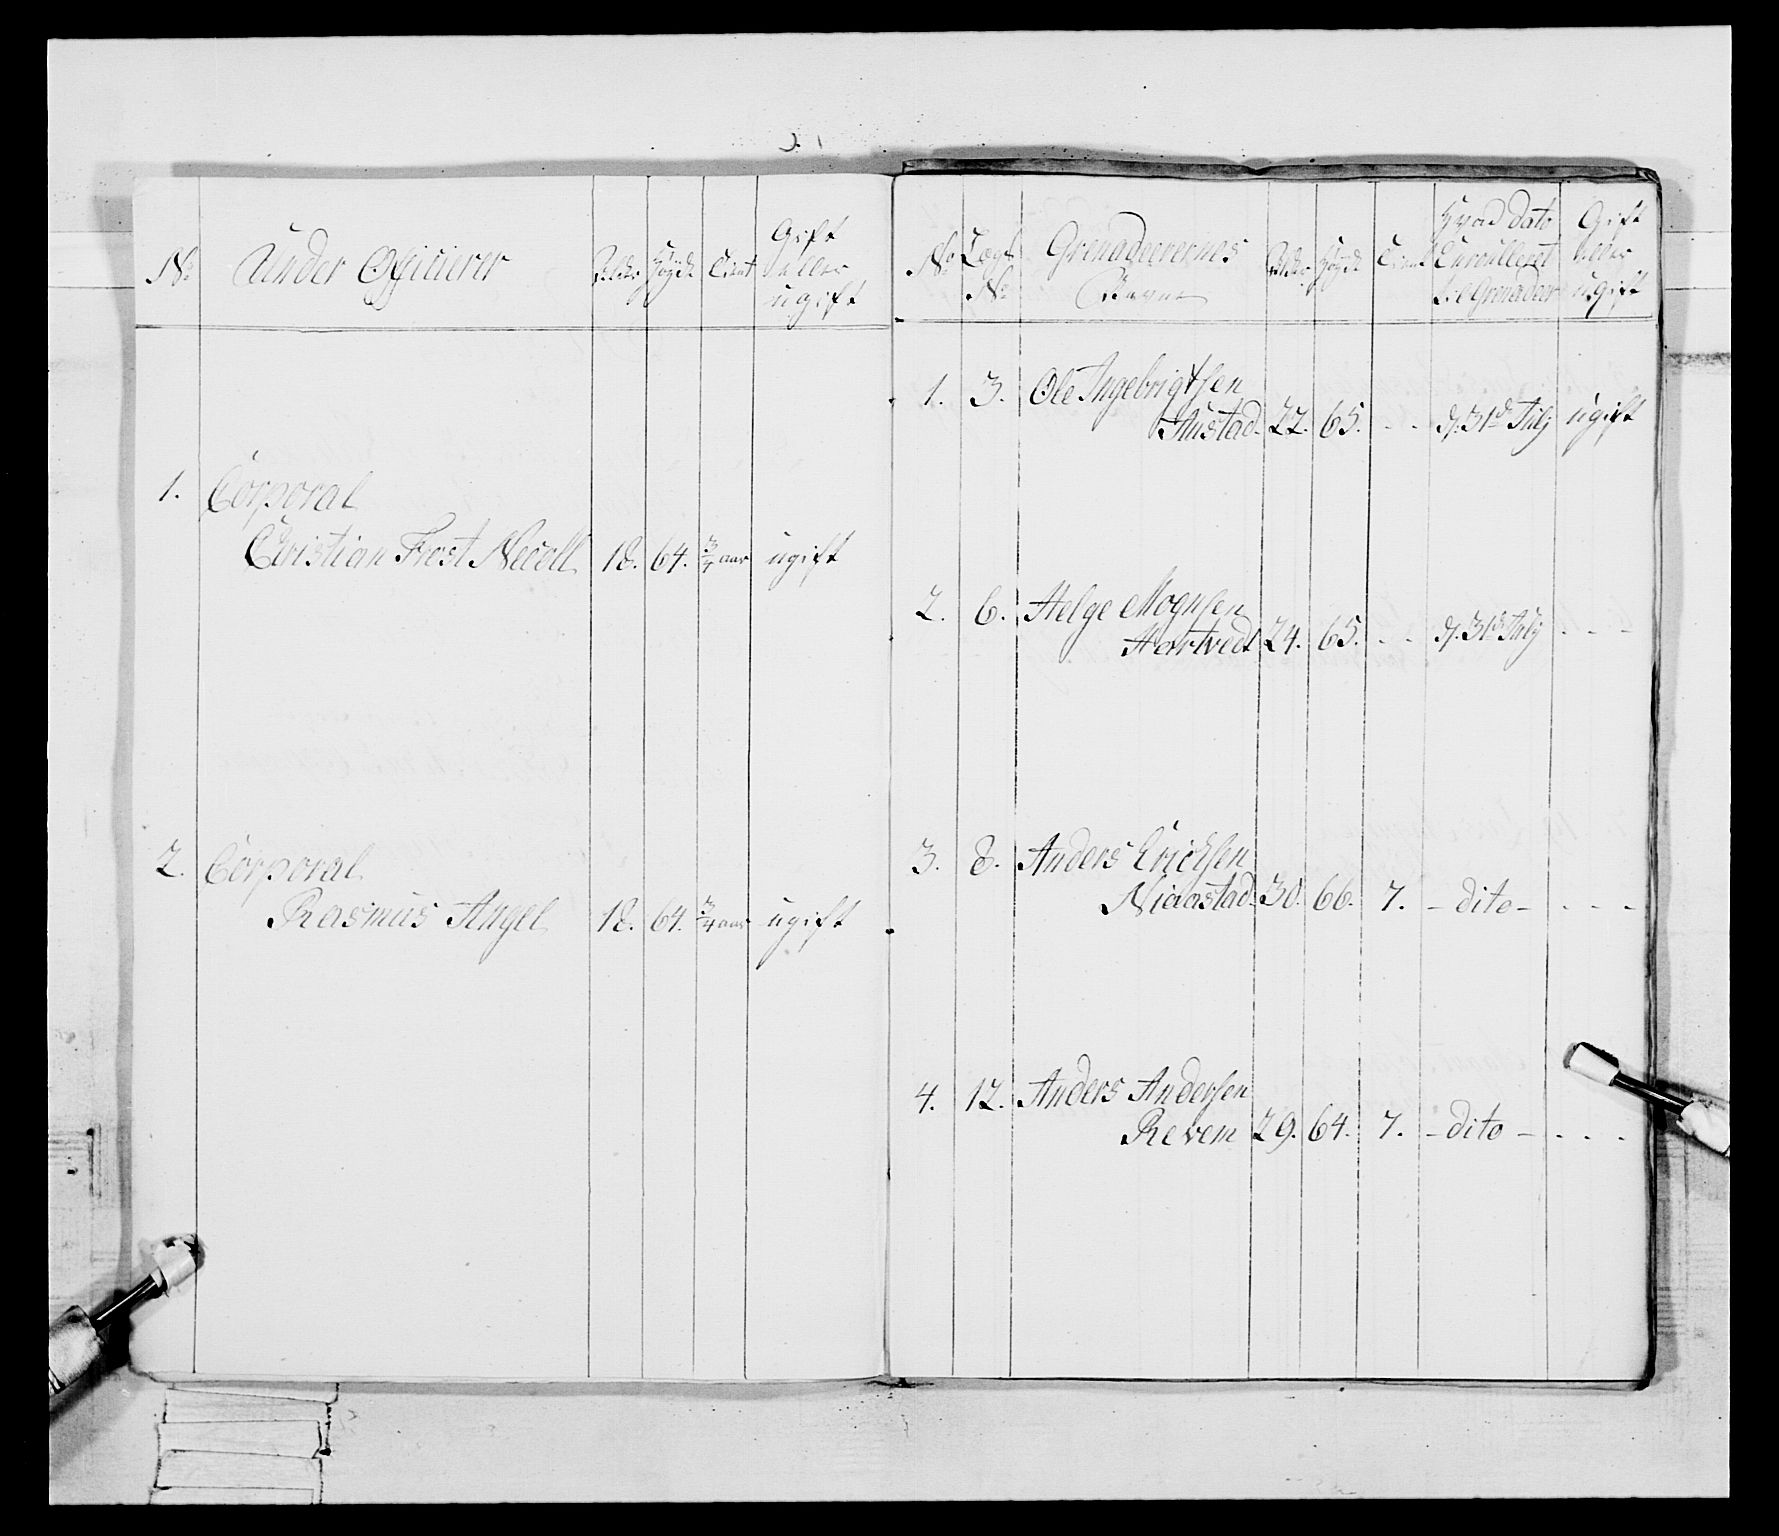 No Under Officierer Alder Høyde Tient Gift eller ugift
1. Corporal
Christian Frost Necoll 18. 64. 3/4 aar ugift
2. Corporal
Rasmus Angel 18. 64. 3/4 aar ugift
No Lægs No Grenadeerernes Nafne Alder Høyde Tient Hvad dato Enroulleret til Grenadeer Gift eller ugift
1. 3. Ole Ingebrigtsen
Hustad. 22. 65. - - d. 31te Julj ugift
2. 6. Helge Mognsen
Hertvedt 24. 65. - - d. 31te Julj - - -
3. 8. Anders Ericksen
30. 66. 7. - dito - - - -
4. 12. Anders Andersen
Revem 29. 64. 7. - dito - - - -